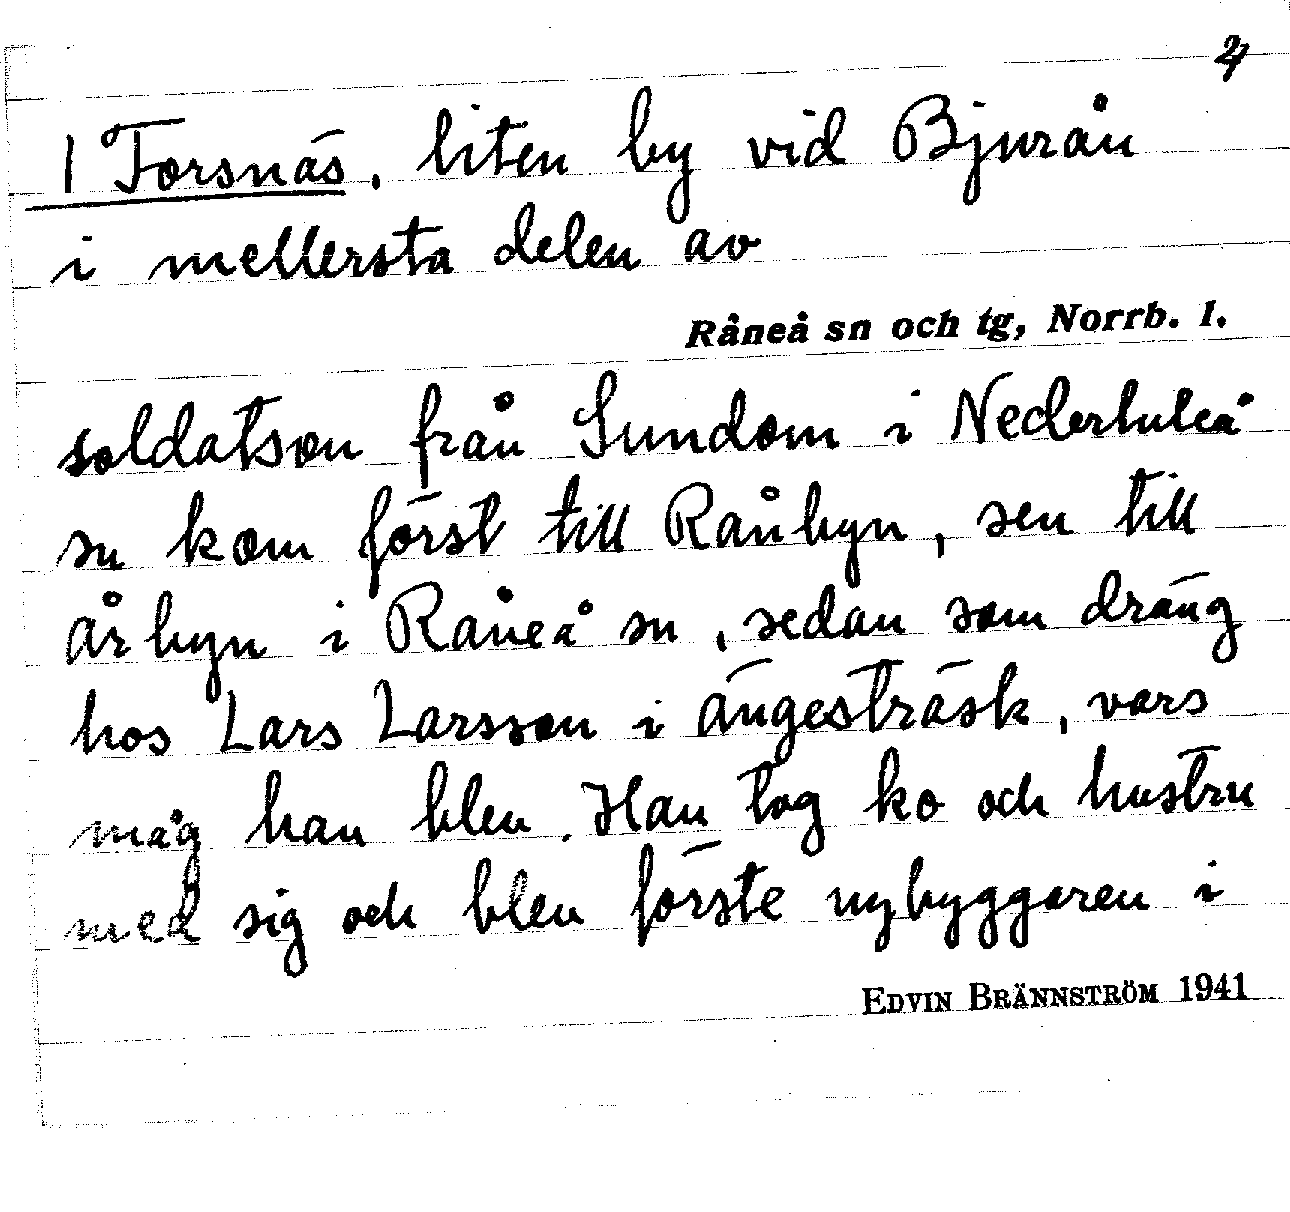 2/
1 Forsnäs, liten by vid Bjurån
i mellersta delen av
Råneå sn och tg, Norrb. l.
soldatson från Sundom i Nederluleå
sn kom först till Rånbyn, sen till
årbyn i Råneå sn, sedan som dräng
hos Lars Larsson i ängesträsk, vars
måg han blev. Han tog ko och hustru
med sig och blev förste nybyggaren i
EDVIN BRÄNNSTRÖM 1941